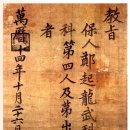 敎旨
保人鄭起龍武科
科第四人及第出
者
萬曆十四年十月二十六